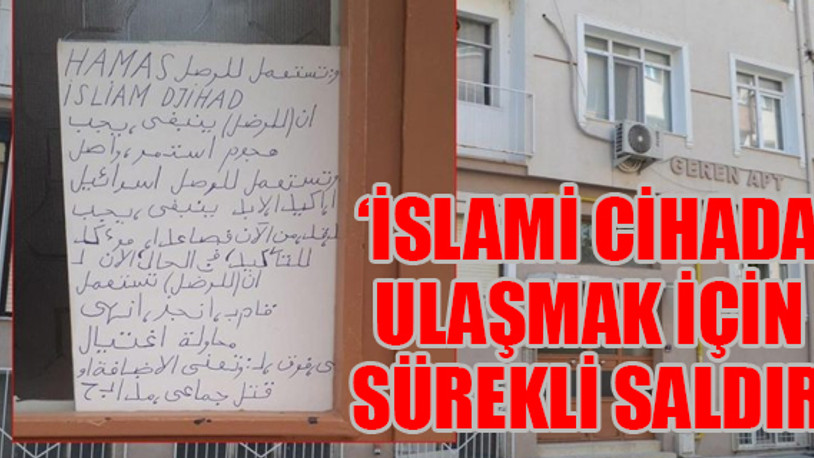 HAMAS وتستعمل للوصل
İSLİAM DJİHAD
ان(للوصل) ينبغى، يجب
هجوم استمر، واصل
وتستعمل للوصل اسرائيل
ينبغى، يجب
من الآن فصاعدا،
فى الحال الآن
ان(للوصل) تستعمل
انجز، انهى
محاولة اغتيال
فوق، وتعنى الاضافة او
قتل جماعى، مذابح
GEREN APT
‘İSLAMİ CİHADA
ULAŞMAK İÇİN
SÜREKLİ SALDIR